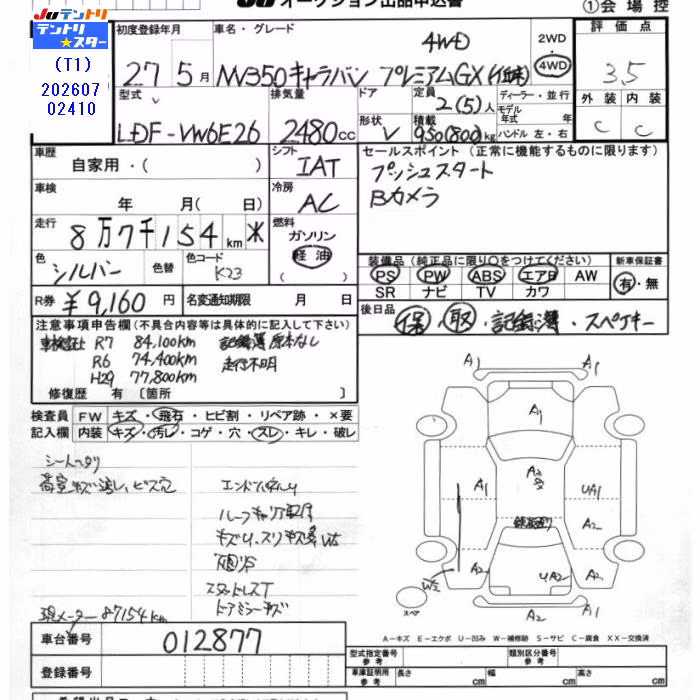 Ju テントリ
テントリ
★スター
(T1)
202607
02410
JU オークション出品申込書
①会場控
初度登録年月
27 5月
車名・グレード
4WD
NV350キャラバン プレミアムGX
2WD
・
4WD
評価点
3.5
型式
LDF-VW6E26
排気量
2480cc
ドア
形状 V
定員
2(5)人
積載
950(800)kg
ディーラー・並行
モデル
年式 年
ハンドル 左・右
外装 内装
C C
車歴
自家用・( )
シフト
IAT
セールスポイント(正常に機能するものに限ります)
プッシュスタート
Bカメラ
車検
年 月( 日)
冷房
AC
走行
8万7千154km ※
燃料
ガソリン
軽油
色
シルバー
色替
色コード
K23
装備品(純正品に限り○をつけてください)
PS PW ABS エアB AW
SR ナビ TV カワ
新車保証書
有・無
R券 ¥9,160円
名変通知期限 月 日
後日品
保・取・記録簿・スペアキー
注意事項申告欄(不具合内容等は具体的に記入して下さい)
車検証 R7 84,100km 記録簿原本なし
R6 74,400km 走行不明
H29 77,800km
修復歴 有〔箇所 〕
検査員
記入欄
FW キズ・飛石・ヒビ割・リペア跡・×要
内装 キズ・汚レ・コゲ・穴・スレ・キレ・破レ
シートヘタリ
荷室キズ凹し、ビス穴
ルーフキャリア
スタットレスT
ドアミラーキズ
現メーター87154km
A1
A1
A1
A1
A3
UA1
A2
A2
UA2
A2
W2
A2
A1
スペア
A−キズ E−エクボ U−凹み W−補修跡 S−サビ C−腐食 XX−交換済
車台番号 012877
登録番号
型式指定番号
参考
類別区分番号
参考
車庫証明用
参考
長さ cm 幅 cm 高さ cm